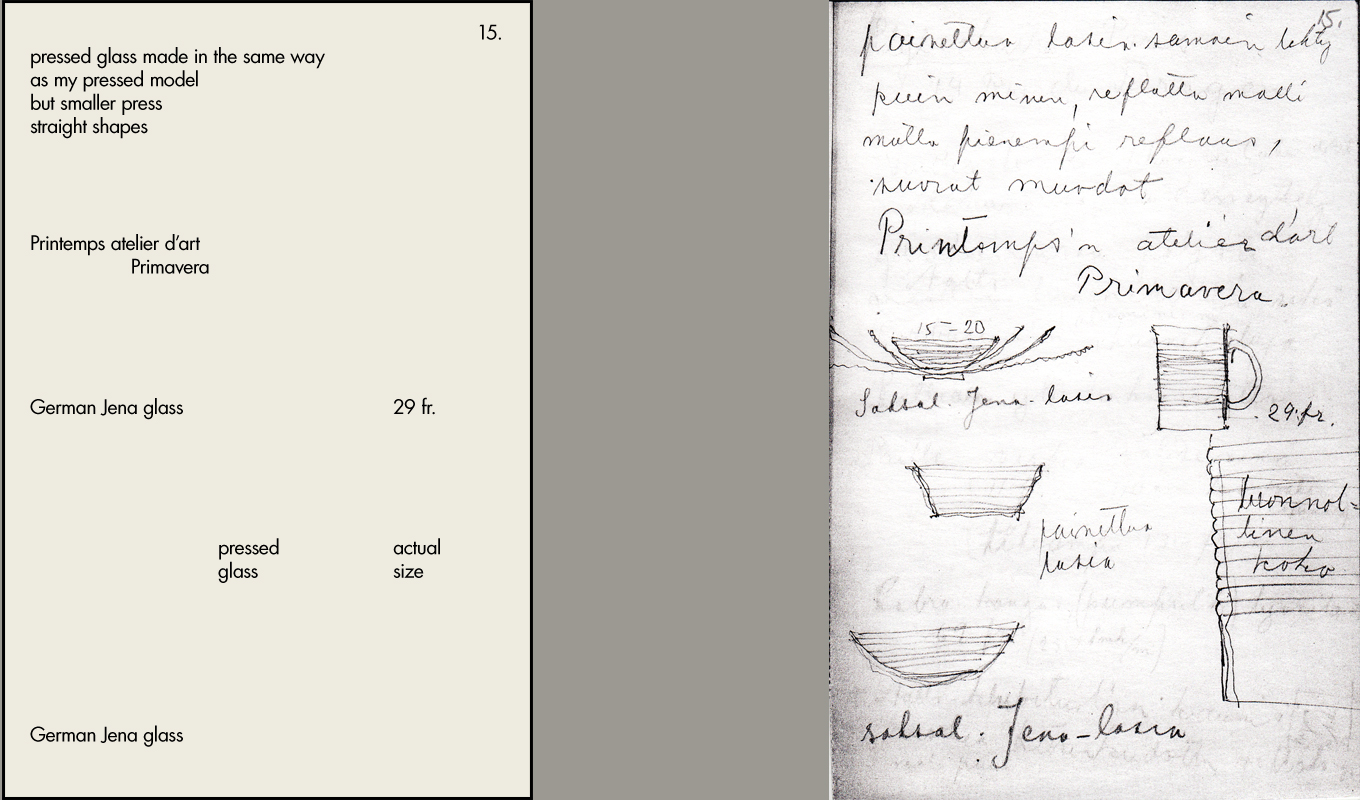 15.
pressed glass made in the same way
as my pressed model
but smaller press
straight shapes
Printemps atelier d'art
Primavera
German Jena glass
29 fr.
pressed
glass
actual
size
German Jena glass
15.
painettua lasia. samoin tehty
kuin minun, reflattu malli
mutta pienempi reflaus,
suorat muodot
Printemps'n atelier d'art
Primavera.
15-20
Saksal. Jena-lasia
29 fr.
painettua
lasia
luonnol=
linen
koko
saksal. Jena-lasia